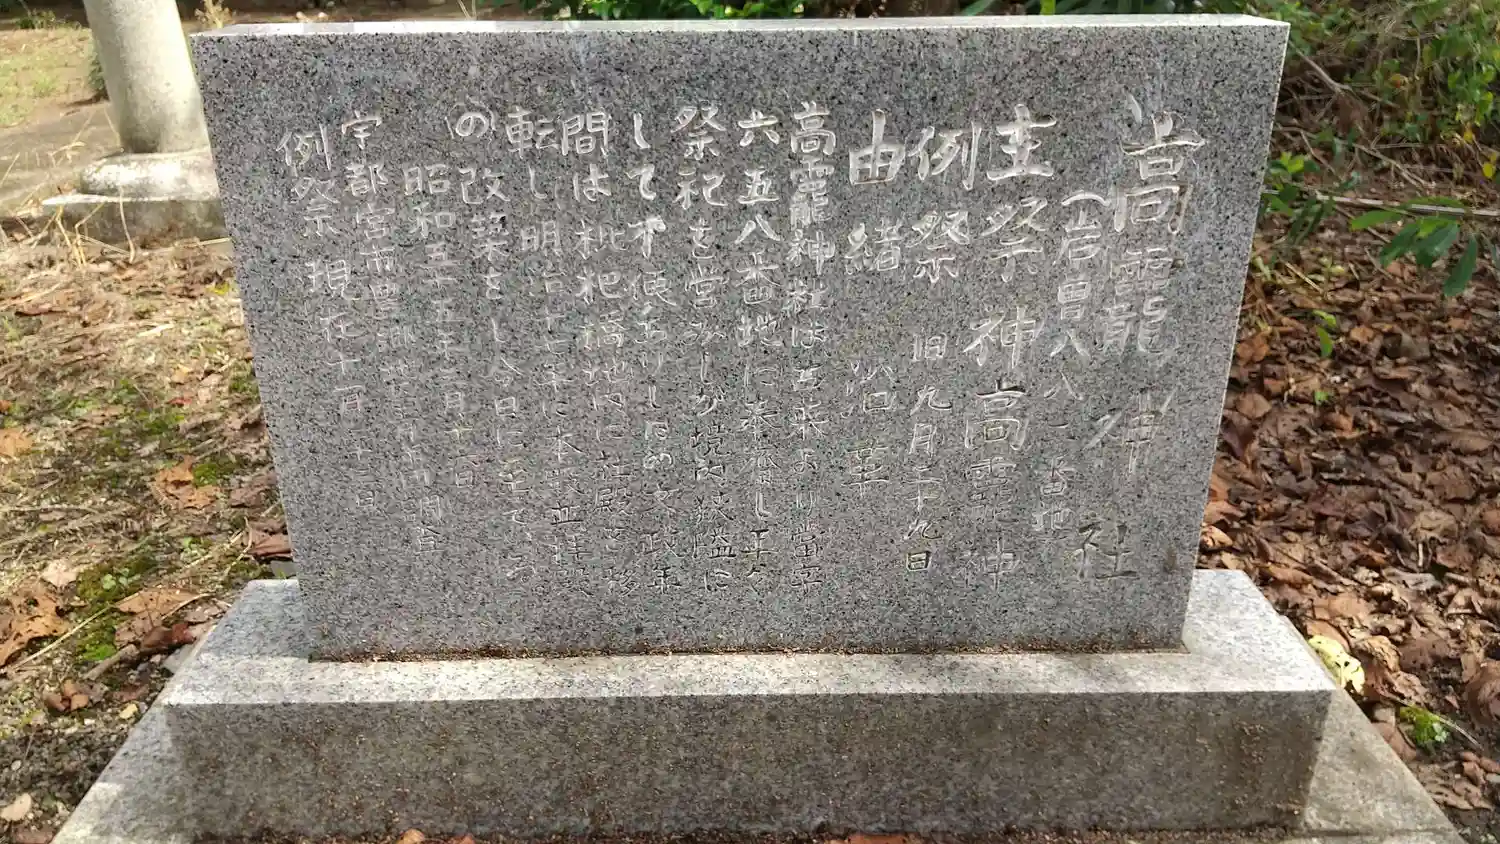 高龗神社
(岩曽八八一番地
主祭神 高龗神
例祭 旧九月二十九日
由緒 沿革
高龗神社は古来より當字
六五八番地に奉斎し年々
祭祀を営みしが境内狭隘に
して不便ありしため文政年
間は枇杷橋地内に社殿を移
転し明治十七年に本殿並拝殿
の改築をし今日に至ている
昭和五十五年三月十一日
宇都宮市豊郷
例祭現在十一月二十三日